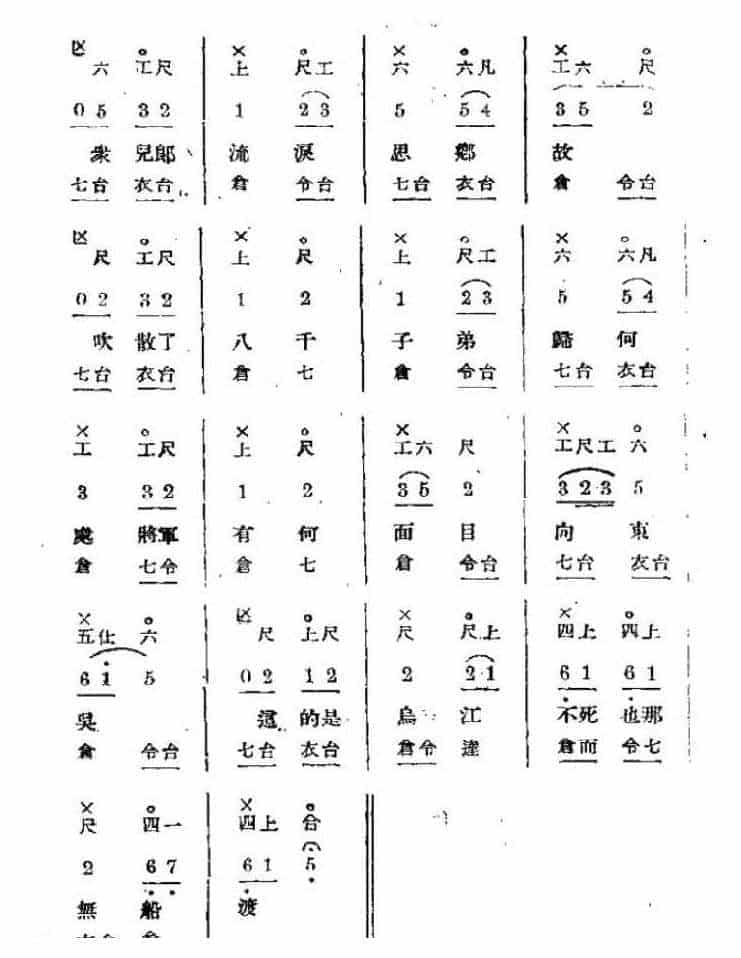 × ○ × ○ × ○ × ○
六 工尺 上 尺工 六 六凡 工六 尺
0 5 3 2 1 2 3 5 5 4 3 5 2
衆 兒郎 流 淚 思 鄉 故
七台 衣台 倉 令台 七台 衣台 倉 令台
× ○ × ○ × ○ × ○
尺 工尺 上 尺 上 尺工 六 六凡
0 2 3 2 1 2 1 2 3 5 5 4
吹 散了 八 千 子 弟 歸 何
七台 衣台 倉 七 倉 令台 七台 衣台
× ○ × ○ × × ○
工 工尺 上 尺 工六 尺 工尺工 六
3 3 2 1 2 3 5 2 3 2·3 5
處 將軍 有 何 面 目 向 東
倉 七令 倉 七 倉 令台 七台 衣台
× ○ ○ × ○ × ○
五仩 六 尺 上尺 尺 尺上 四上 四上
6 1 5 0 2 1 2 2 2·1 6 1 6 1
吳 這 的是 烏 江 不死 也那
倉 令台 七台 衣台 倉令 逹 倉而 令七
× ○ × ○
尺 四一 四上 合
2 6 7 6 1 5
無 船 渡